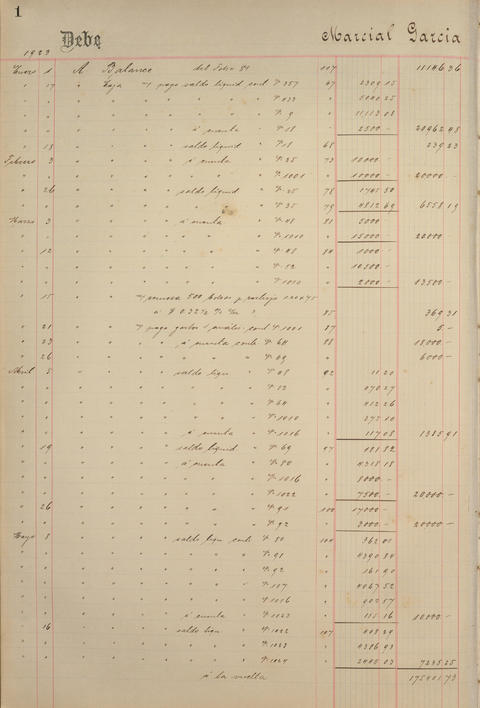 1
Debe Marcial Garcia
1923
Enero 1 A Balance del Folio 84 107 11146.36
" 17 " Caja pago saldo liquid cont F. 357 47 2309.15
" " " " " " " " F. 433 5040.25
" " " " " " " " F. 9 11,113.08
" " " " " á cuenta " F. 18 2500.- 20962.48
" 18 " " " saldo liquid " F. 18 68 239.23
Febrero 3 " " " á cuenta " F. 25 73 10000.-
" " " " " " " " F. 1001 " 10000.- 20000.-
" 26 " " " saldo liquid " F. 25 78 1745.50
" " " " " " " F. 35 79 4812.69 6558.19
Marzo 3 " " " á cuenta " " F. 48 81 5000.-
" " " " " " " " F. 1010 " 15000.- 20000.-
" 12 " " " " " " F. 48 84 1000.-
" " " " " " " " F. 52 " 10,500.-
" " " " " " " " F. 1010 " 2000.- 13,500.-
" 15 " " remesa 500 bolsos p
a $ 0.32 85 369.31
" 21 " " pago gastos cont F. 1001 87 5.-
" 23 " " " á cuenta cont F. 64 88 18,000.-
" 26 " " " " " " F. 69 " 6000.-
Abril 5 " " " saldo liqu " F. 48 92 11.20
" " " " " " " " F. 52 470.27
" " " " " " " " F. 64 412.26
" " " " " " " " F. 1010 372.10
" " " " " á cuenta " F. 1016 117.08 1385.91
" 19 " " " saldo liquid " F. 69 97 181.82
" " " " " á cuenta " F. 80 4318.18
" " " " " " " " F. 1016 8000.-
" " " " " " " " F. 1022 7500.- 20,000.-
" 26 " " " " " " F. 91 100 17000.-
" " " " " " " " F. 92 3000.- 20000.-
Mayo 8 " " " saldo liqu cont F. 80 104 362.01
" " " " " " " " F. 98 4390.84
" " " " " " " " F. 92 161.90
" " " " " " " " F. 107 4067.52
" " " " " " " " F. 1016 902.57
" " " " " á cuenta " F. 1023 115.16 10,000.-
" 16 " " " saldo liqu " F. 1022 107 403.29
" " " " " " " " F. 1023 4386.93
" " " " " " " " F. 1024 2445.03 7235.25
á la vuelta 175401.73